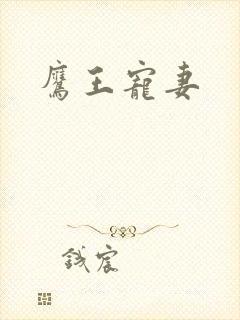 鷹王寵妻
錢宸